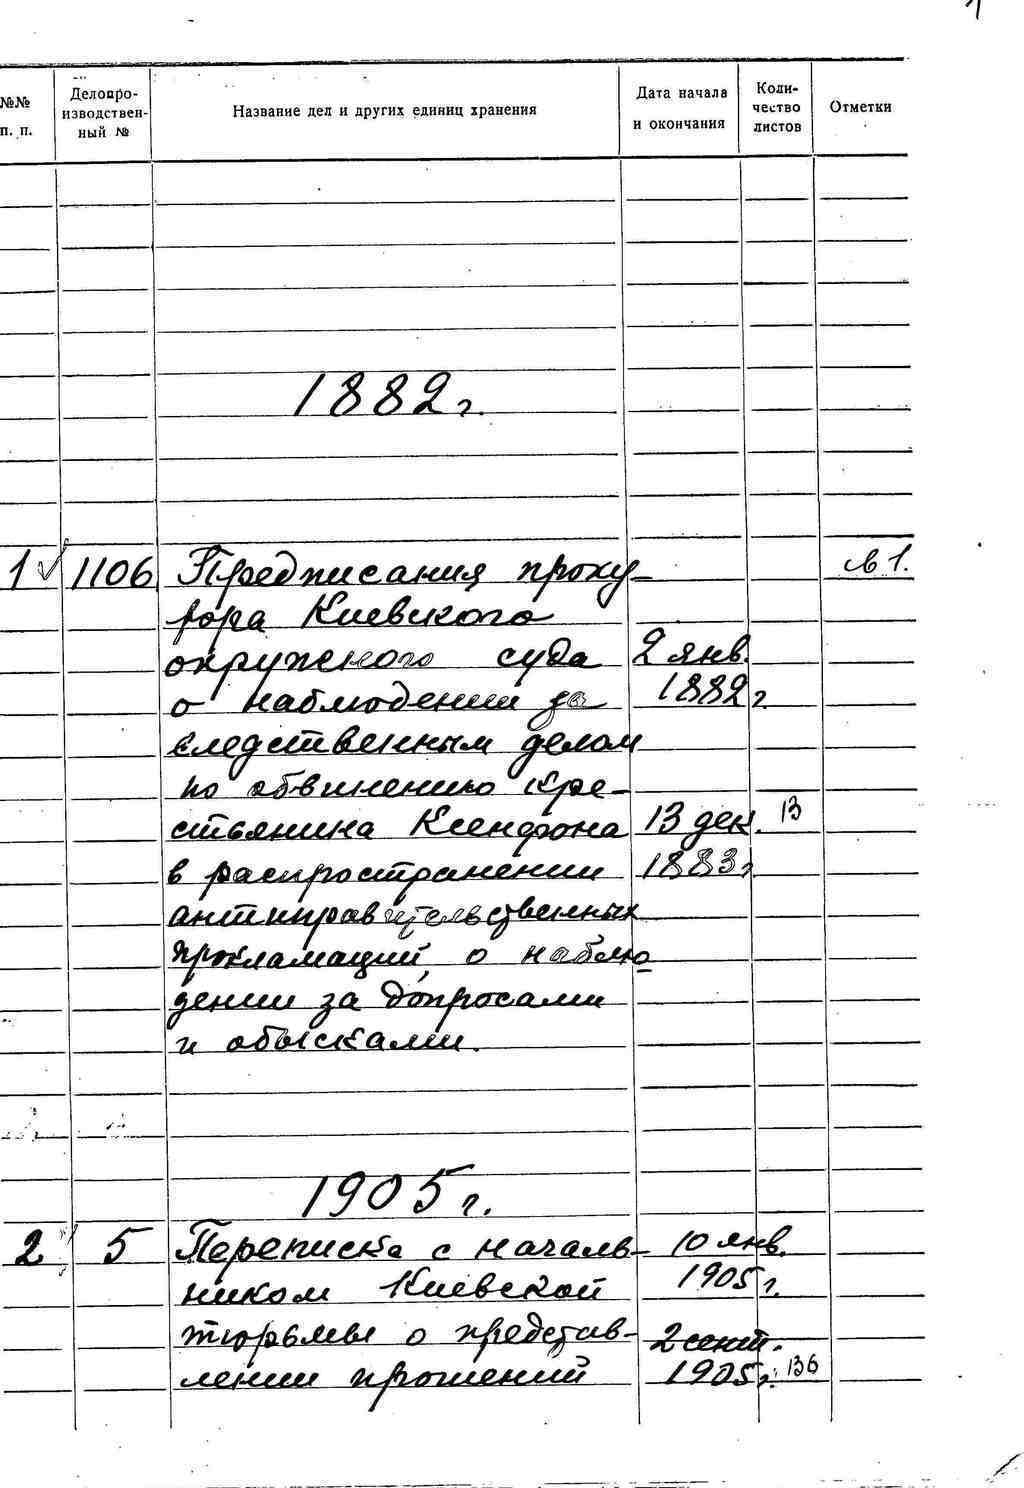 1
№№ п. п.
Делопроизводственный №
Название дел и других единиц хранения
Дата начала и окончания
Количество листов
Отметки
1882 г.
1 1106 Предписания проку-
рора Киевского
окружного суда 2 янв.
о наблюдении за 1882 г.
следственным делом
по обвинению кре-
стьянина Ксенфона 13 дек. 13
в распространении 1883 г
антиправительственных
прокламаций, о наблю-
дении за допросами
и обысками.
св 1.
1905 г.
2 5 Переписка с началь- 10 янв.
ником Киевской 1905 г.
тюрьмы о представ- 2 сент.
лении прошений 1905 г. 136